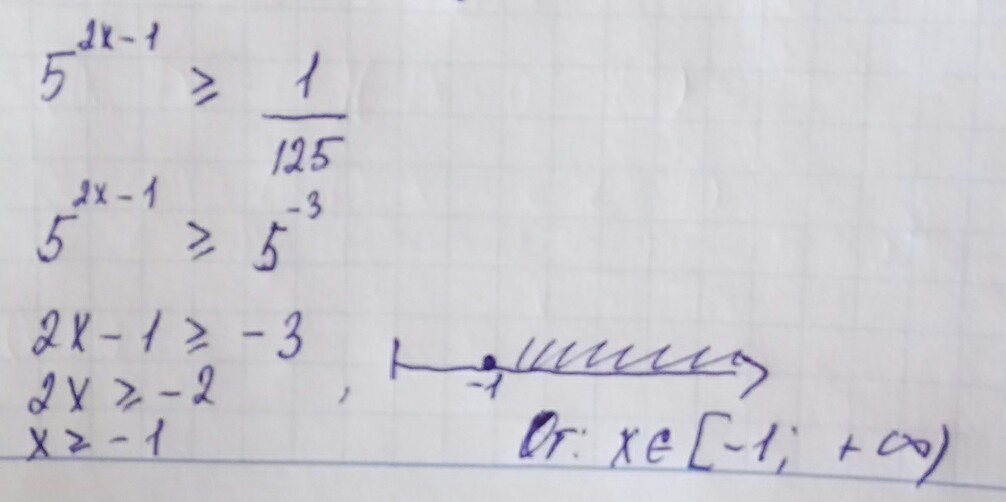 5^{2x-1} ≥ 1/125
5^{2x-1} ≥ 5^{-3}
2x-1 ≥ -3
2x ≥ -2 ,
x ≥ -1
-1
От: x∈[-1; +∞)